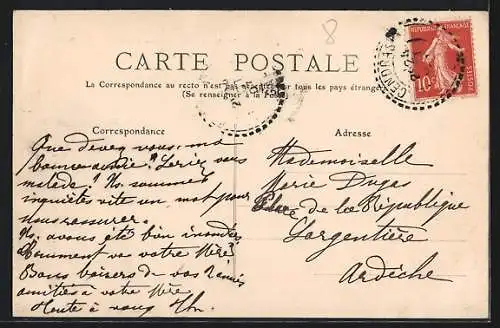 8
CARTE POSTALE
La Correspondance au recto n'est pas acceptée par tous les pays étrangers
(Se renseigner à la Poste)
10c
POSTES
Correspondance
Adresse
Que devenez vous, ma
bonne amie? Seriez vous
malade? Ns. sommes
inquiètes vite un mot pour
nous rassurer.
Ns. avons été bien inondés
Comment va votre Mère?
Bons baisers de vos 2 amies
amitiés à votre Mère
Toute à vous
Mademoiselle
Marie Dugas
Place de la République
Largentière
Ardèche